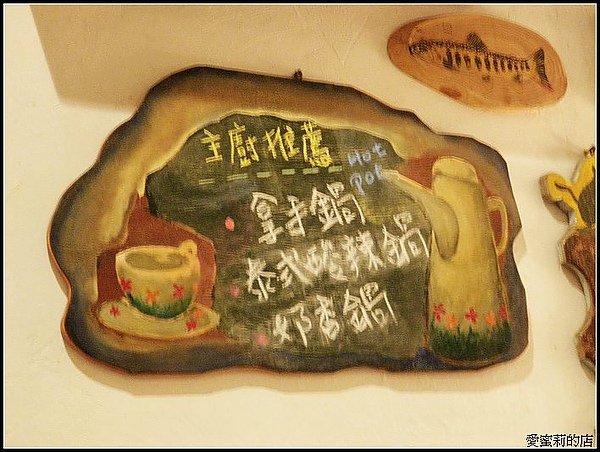 主廚推薦
Hot
Pot
拿手鍋
泰式酸辣鍋
奶香鍋
愛蜜莉的店